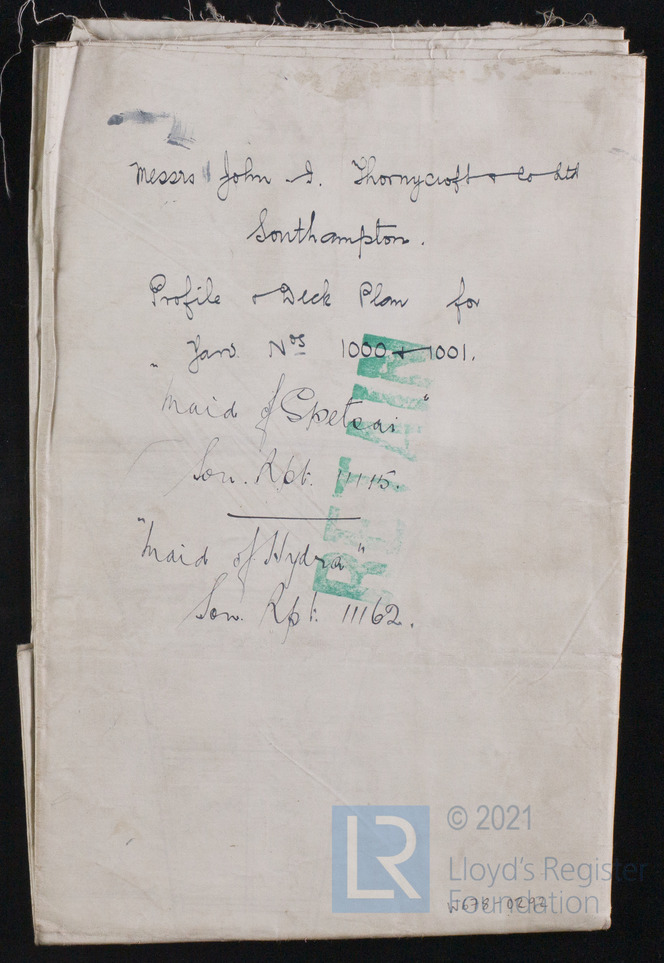 Messrs John I. Thornycroft & Co Ltd
Southampton.
Profile & Deck Plan for
Yard Nos 1000 & 1001.
"Maid of Spetsai"
Sou. Rpt. 11115.
"Maid of Hydra"
Sou. Rpt. 11162.
RETAIN
LR
© 2021
Lloyd's Register
Foundation
W678 0292